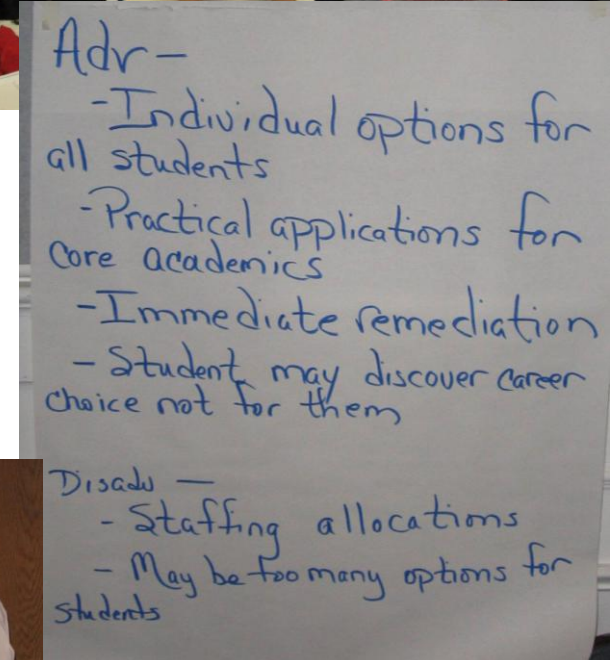 Adv-
-Individual options for
all students
-Practical applications for
Core academics
-Immediate remediation
- Student may discover career
choice not for them
Disadv -
- Staffing allocations
- May be too many options for
students